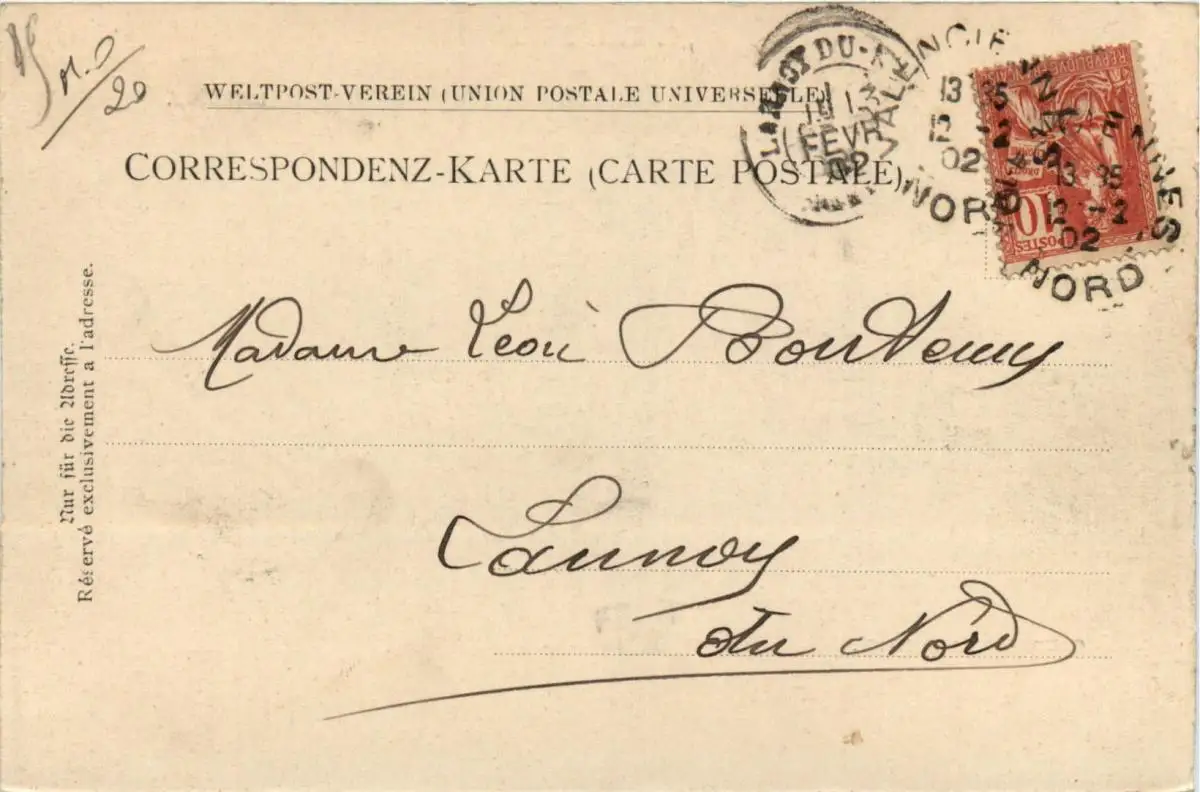 M.O
/20
WELTPOST-VEREIN (UNION POSTALE UNIVERSELLE)
CORRESPONDENZ-KARTE (CARTE POSTALE).
LANNOY-DU-N
FEVR
02
VALENCIENNES
13 35
12 -2
02
NORD
VALENCIENNES
13 35
12 -2
02
NORD
10
POSTES
Nur für die Adresse.
Réservé exclusivement a l'adresse.
Madame Léon Bontemy
Lannoy
du Nord